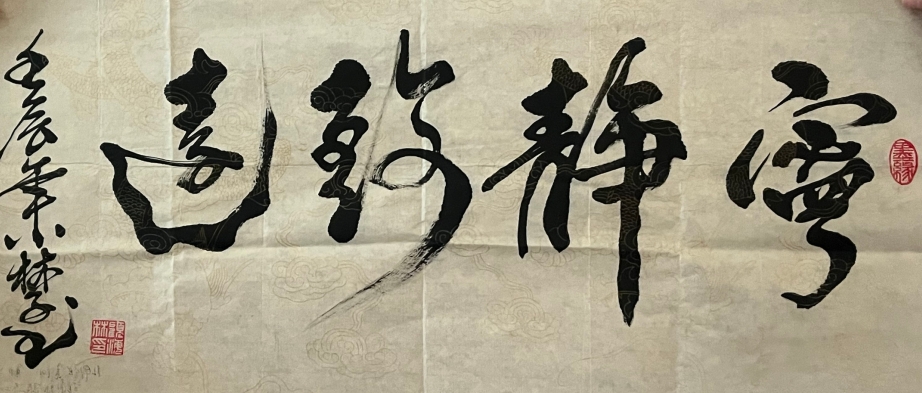 寧靜致遠
壬辰年小楚書